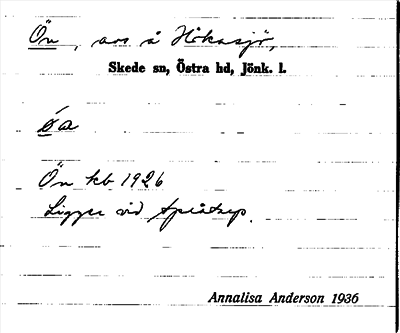 Ön, avs å Hökasjö,
Skede sn, Östra hd, Jönk. l.
öa
Ön kb 1926
Ligger vid
Annalisa Anderson 1936